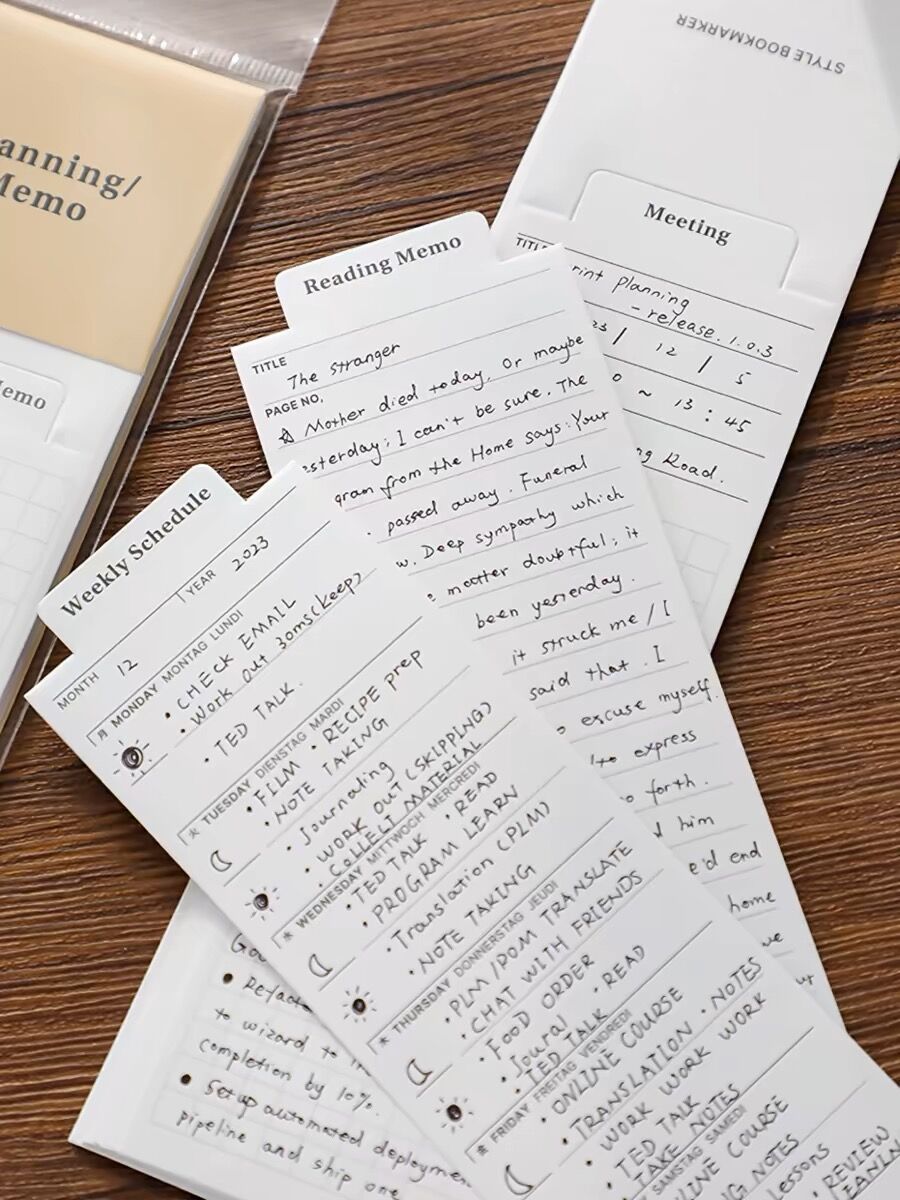 STYLE BOOKMARKER
anning/
Memo
Memo
Meeting
TITLE
rint planning
- release. 1.0.3
23 / 12 / 5
0 ~ 13:45
ng Road.
Reading Memo
TITLE The Stranger
PAGE NO.
☆ Mother died today. Or maybe
esterday; I can't be sure. The
gram from the Home says: Your
passed away. Funeral
w. Deep sympathy which
matter doubtful; it
been yesterday.
it struck me / I
said that. I
excuse myself.
to express
so forth.
d him
e'd end
home
we
ur
Weekly Schedule
MONTH 12 YEAR 2023
月 MONDAY MONTAG LUNDI
• CHECK EMAIL
• Work out 30ms (keep)
• TED TALK.
火 TUESDAY DIENSTAG MARDI
• FILM • RECIPE prep
• NOTE TAKING
• Journaling
• WORK OUT (SKIPPING)
• COLLECT MATERIAL
水 WEDNESDAY MITTWOCH MERCREDI
• TED TALK • READ
• PROGRAM LEARN
• Translation (PLM)
• NOTE TAKING
木 THURSDAY DONNERSTAG JEUDI
• PLM / POM TRANSLATE
• CHAT WITH FRIENDS
• FOOD ORDER
• Joural • READ
• TED TALK
FRIDAY FREITAG VENDREDI
• ONLINE COURSE
• TRANSLATION • NOTES
• WORK WORK WORK
• TED TALK
• TAKE NOTES
SAMSTAG SAMEDI
LINE COURSE
NG NOTES
essons REVIEW
Goa
• Refacto
to wizard to
completion by 10%.
• Setup automated deployme
pipeline and ship one